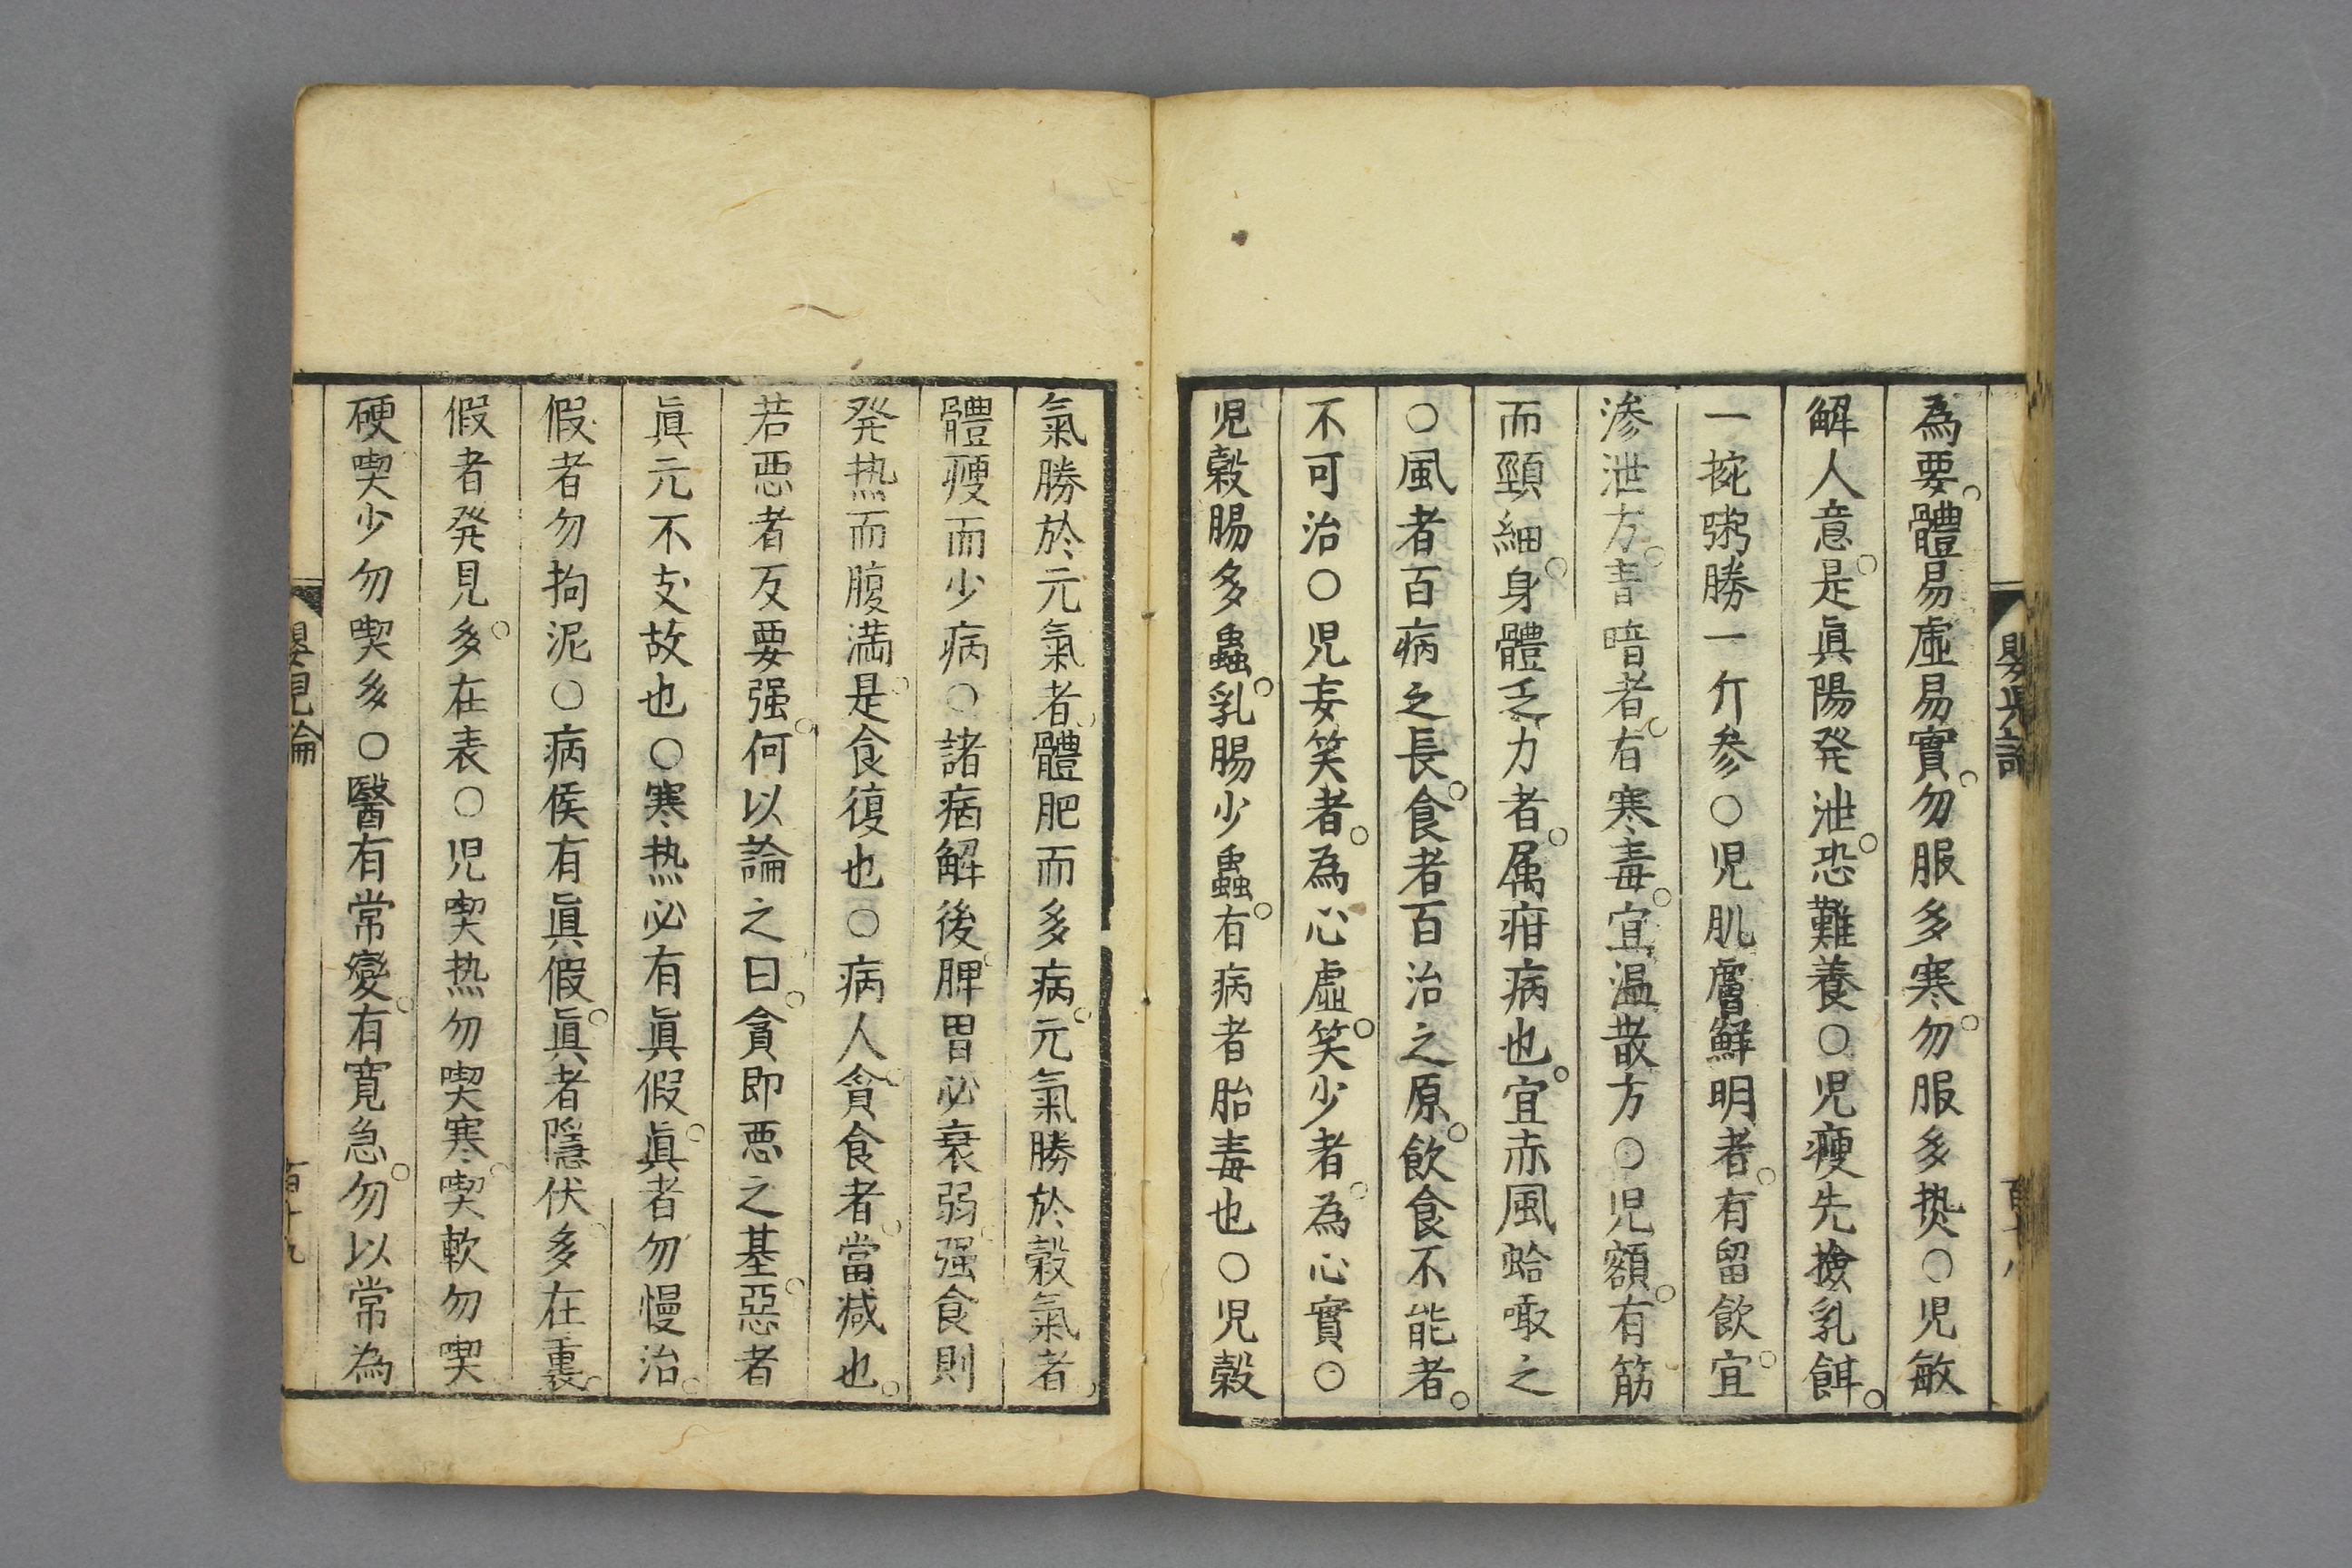 為要。體易虛易實。勿服多寒。勿服多热○児敏
解人意。是眞陽発泄。恐難養○児瘦先撿乳餌。
一椀粥勝一斤参○児肌膚鮮明者。有留飲。宜
渗泄方。青暗者。有寒毒。宜温散方○児額。有筋
而頸細。身體乏力者。属疳病也。宜赤風蛤噉之
○風者百病之長。食者百治之原。飲食不能者。
不可治○児妄笑者。為心虛。笑少者。為心實○
児穀腸多蟲。乳腸少蟲。有病者胎毒也○児穀
嬰児論
百十八
氣勝於元氣者。體肥而多病。元氣勝於穀氣者。
體瘦而少病○諸病解後。脾胃必衰弱。强食則
発热而腹満。是食復也○病人貪食者。當减也。
若惡者反要强。何以論之曰。貪即悪之基。惡者
眞元不支故也○寒热必有眞假。眞者勿慢治。
假者勿拘泥○病候有眞假。眞者隱伏多在裏。
假者発見多。在表○児喫热勿喫寒。喫軟勿喫
硬喫少勿喫多○醫有常變。有寬急。勿以常為
嬰児論
百十九